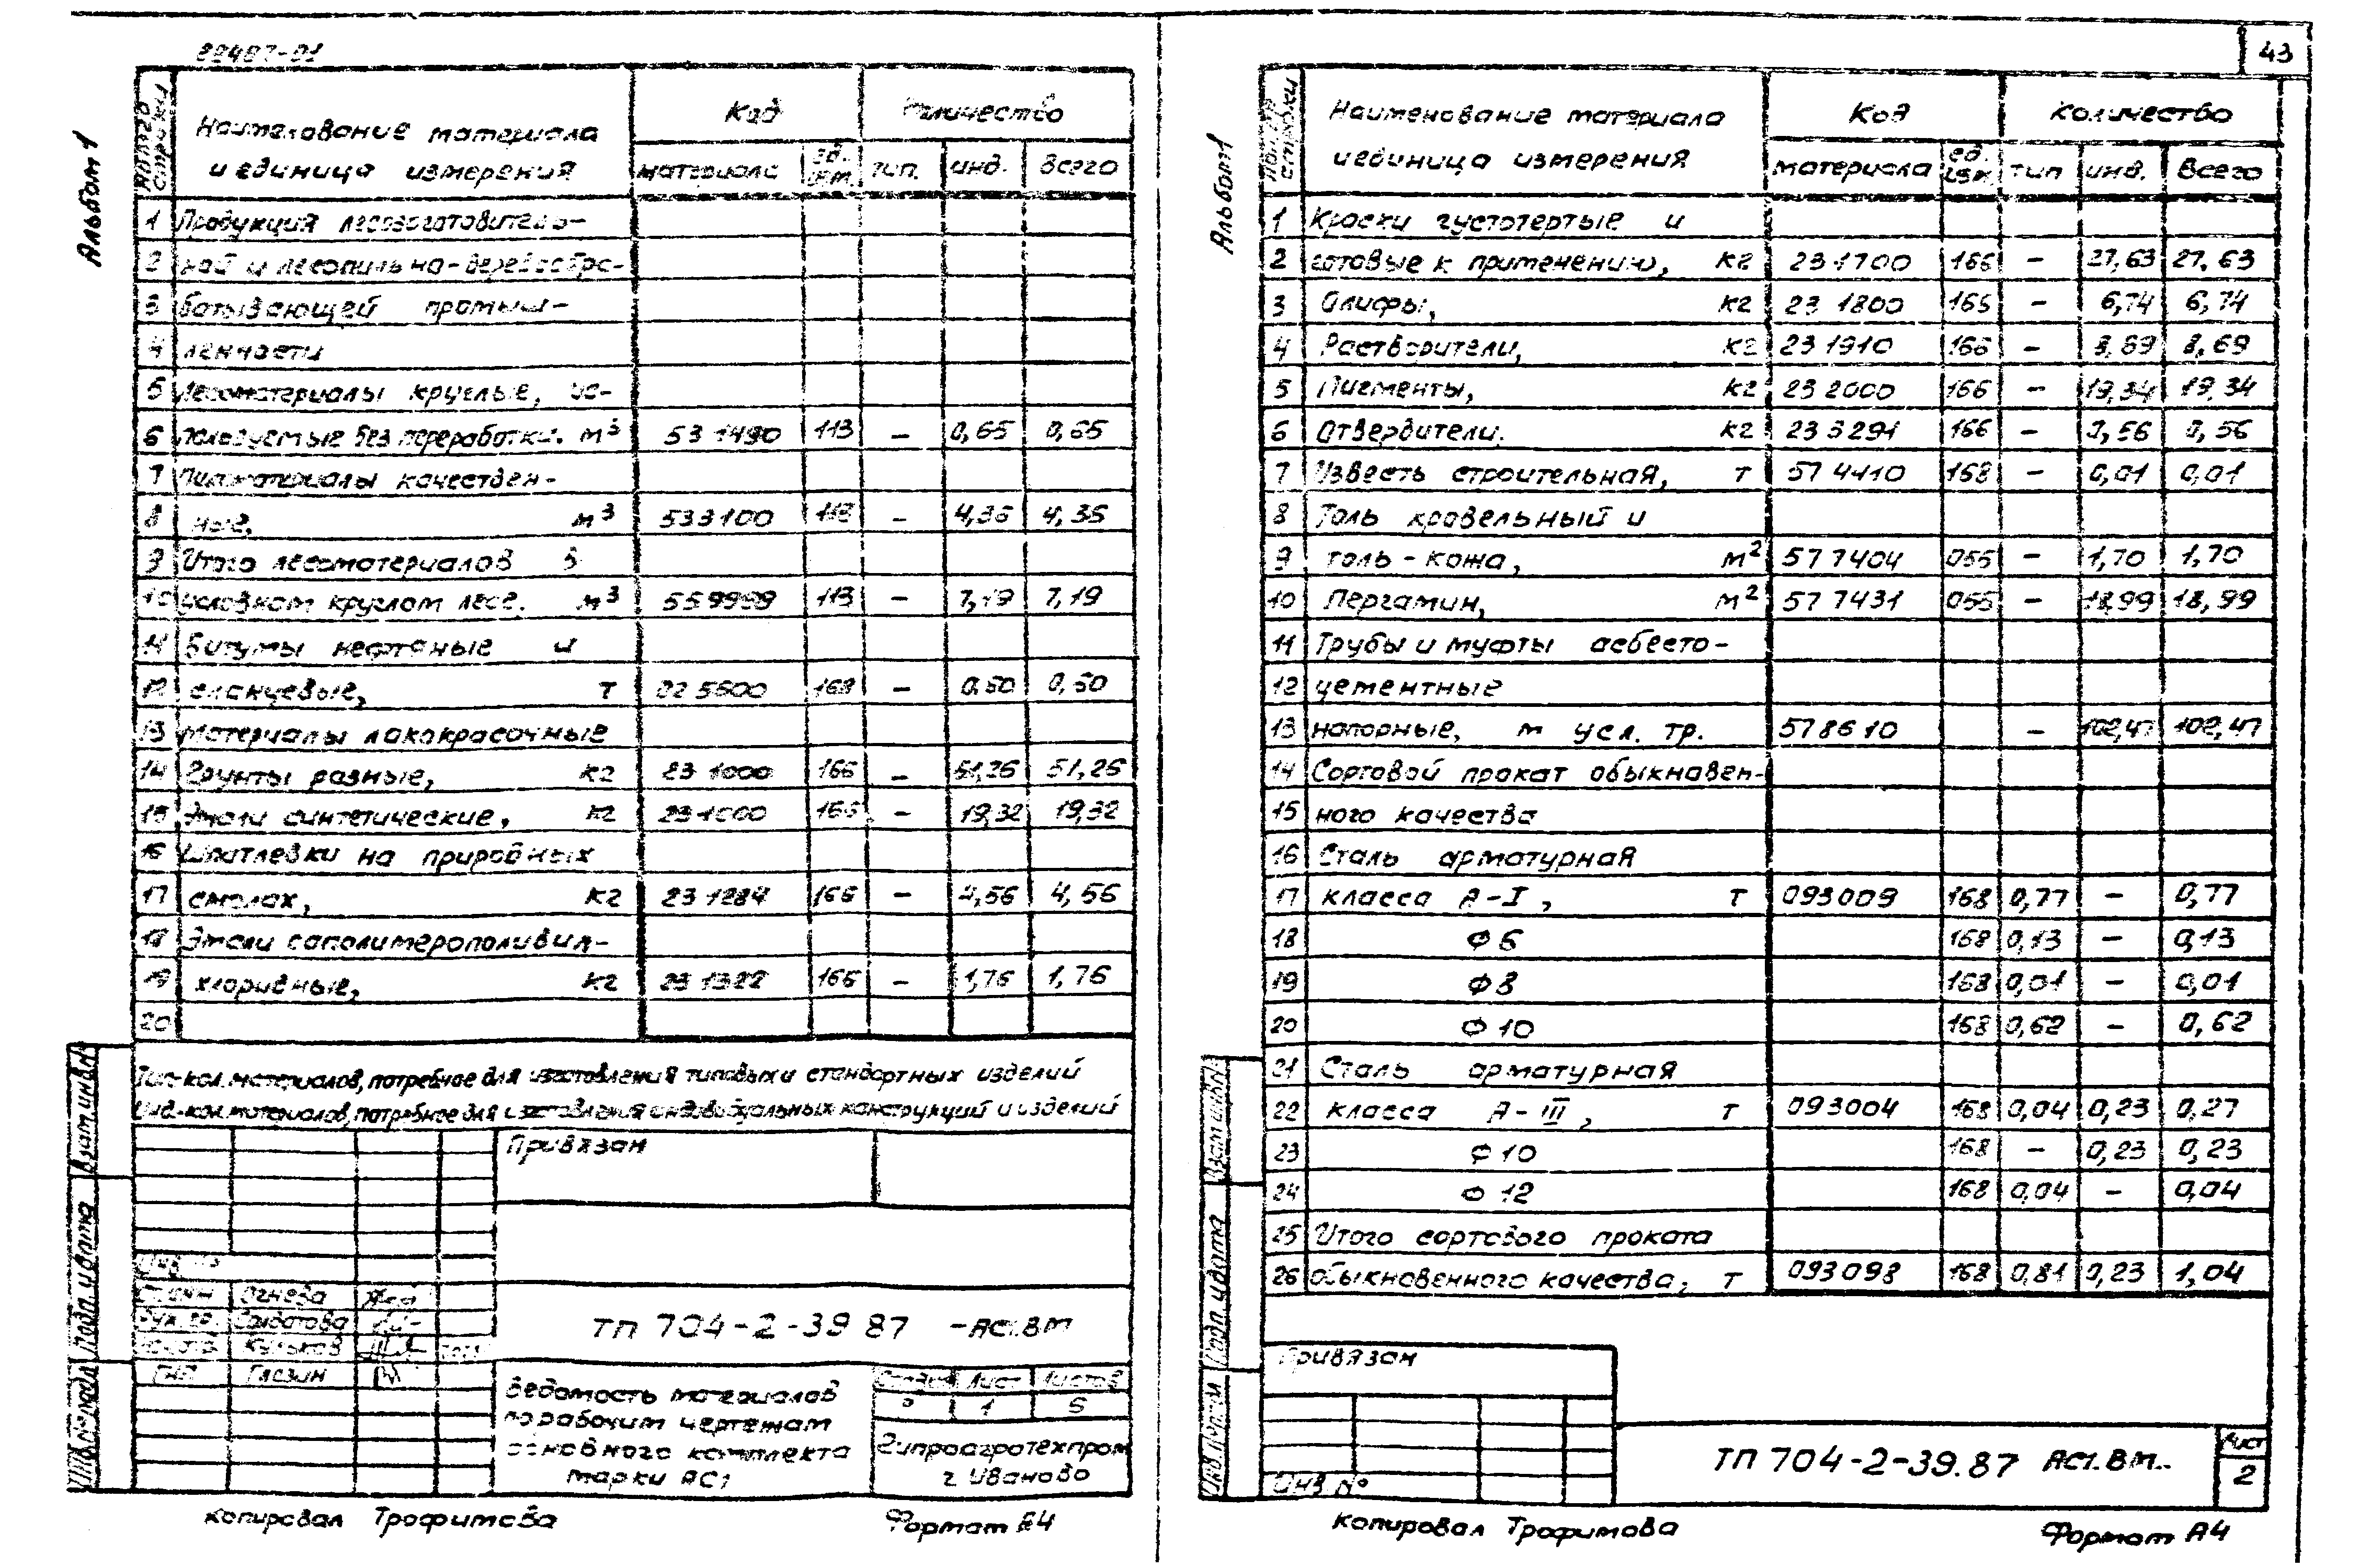 22487-01
Альбом 1
Наименование материала и единица измерения | Код | Количество
материала | ед. изм. | тип. | инд. | всего
1 Продукция лесозаготовитель-
2 ной и лесопильно-деревообра-
3 батывающей промыш-
4 ленности
5 Лесоматериалы круглые, ис-
6 пользуемые без переработки. м³ 531490 113 – 0,65 0,65
7 Пиломатериалы качествен-
8 ные, м³ 533100 113 – 4,36 4,36
9 Итого лесоматериалов в
10 условном круглом лесе. м³ 559999 113 – 7,19 7,19
11 Битумы нефтяные и
12 сланцевые, т 025600 168 – 0,50 0,50
13 Материалы лакокрасочные
14 Грунты разные, кг 231000 166 – 51,26 51,26
15 Эмали синтетические, кг 231000 166 – 19,32 19,32
16 Шпатлевки на природных
17 смолах, кг 231284 166 – 4,56 4,56
18 Эмали сополимерополивил-
19 хлоридные, кг 231322 166 – 1,76 1,76
20
Тип-кол. материалов, потребное для изготовления типовых и стандартных изделий
Инд-кол. материалов, потребное для изготовления индивидуальных конструкций и изделий
Привязан
Ст. инж Огнева
Рук. гр. Солдатова
Кульков
ГИП Глазин
ТП 704-2-39 87 -АС1.ВМ
Ведомость материалов
по рабочим чертежам
основного комплекта
марки АС1
Стадия Лист Листов
Р 1 5
Гипроагротехпром
г Иваново
Взам. инв N
Подп. и дата
Инв. № подл
Копировал Трофимова
Формат А4
43
Альбом 1
Наименование материала и единица измерения | Код | Количество
материала | ед. изм. | тип | инв. | Всего
1 Краски густотертые и
2 готовые к применению, кг 231700 166 – 27,63 27,63
3 Олифы, кг 231800 166 – 6,74 6,74
4 Растворители, кг 231910 166 – 8,69 8,69
5 Пигменты, кг 232000 166 – 19,34 19,34
6 Отвердители. кг 233291 166 – 0,56 0,56
7 Известь строительная, т 574410 168 – 0,01 0,01
8 Толь кровельный и
9 толь-кожа, м² 577404 055 – 1,70 1,70
10 Пергамин, м² 577431 055 – 18,99 18,99
11 Трубы и муфты асбесто-
12 цементные
13 напорные, м усл. тр. 578610 – 102,47 102,47
14 Сортовой прокат обыкнавен-
15 ного качества
16 Сталь арматурная
17 класса А-I, т 093009 168 0,77 – 0,77
18 Ф 6 168 0,13 – 0,13
19 Ф 8 168 0,01 – 0,01
20 Ф 10 168 0,62 – 0,62
21 Сталь арматурная
22 класса А-III, т 093004 168 0,04 0,23 0,27
23 Ф 10 168 – 0,23 0,23
24 Ф 12 168 0,04 – 0,04
25 Итого сортового проката
26 обыкновенного качества, т 093098 168 0,81 0,23 1,04
Привязан
Инв №
ТП 704-2-39.87 АС1.ВМ.
Лист
2
Взам инв N
Подп. и дата
Копировал Трофимова
Формат А4